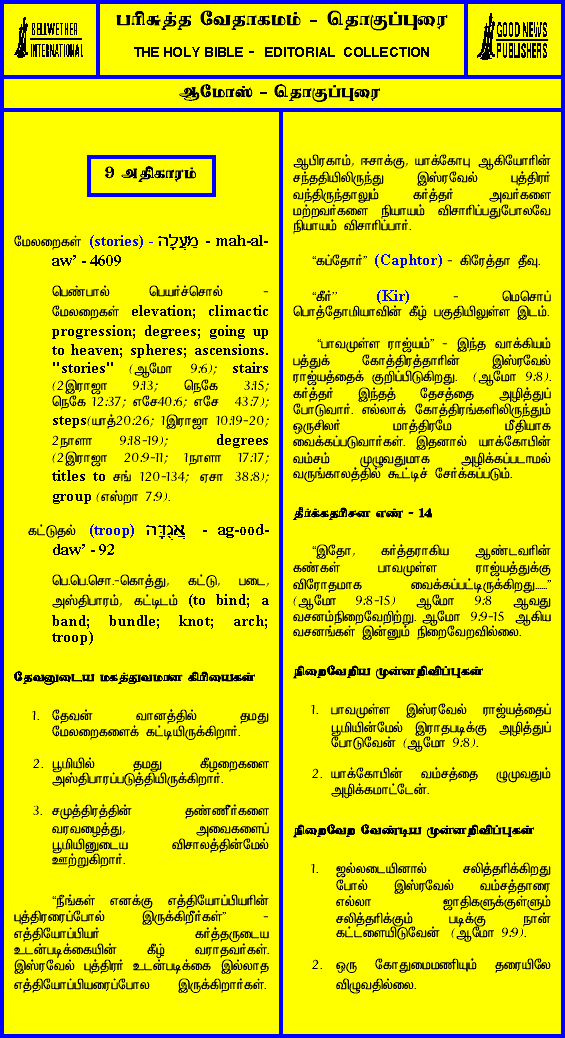 BELLWETHER
INTERNATIONAL
பரிசுத்த வேதாகமம் - தொகுப்புரை
THE HOLY BIBLE - EDITORIAL COLLECTION
GOOD NEWS
PUBLISHERS
ஆமோஸ் - தொகுப்புரை
9 அதிகாரம்
மேலறைகள் (stories) - מַעֲלָה - mah-al-
aw’ - 4609
பெண்பால் பெயர்ச்சொல் -
மேலறைகள் elevation; climactic
progression; degrees; going up
to heaven; spheres; ascensions.
"stories" (ஆமோ 9:6); stairs
(2இராஜா 9:13; நெகே 3:15;
நெகே 12:37; எசே40:6; எசே 43:7);
steps(யாத்20:26; 1இராஜா 10:19-20;
2நாளா 9:18-19); degrees
(2இராஜா 20:9-11; 1நாளா 17:17;
titles to சங் 120-134; ஏசா 38:8);
group (எஸ்றா 7:9).
கட்டுதல் (troop) אֲגֻדָּה - ag-ood-
daw’ - 92
பெ.பெ.சொ.-கொத்து, கட்டு, படை,
அஸ்திபாரம், கட்டிடம் (to bind; a
band; bundle; knot; arch;
troop)
தேவனுடைய மகத்துவமான கிரியைகள்
1. தேவன் வானத்தில் தமது
மேலறைகளைக் கட்டியிருக்கிறார்.
2. பூமியில் தமது கீழறைகளை
அஸ்திபாரப்படுத்தியிருக்கிறார்.
3. சமுத்திரத்தின் தண்ணீர்களை
வரவழைத்து, அவைகளைப்
பூமியினுடைய விசாலத்தின்மேல்
ஊற்றுகிறார்.
“நீங்கள் எனக்கு எத்தியோப்பியரின்
புத்திரரைப்போல் இருக்கிறீர்கள்” -
எத்தியோப்பியர் கர்த்தருடைய
உடன்படிக்கையின் கீழ் வராதவர்கள்.
இஸ்ரவேல் புத்திரர் உடன்படிக்கை இல்லாத
எத்தியோப்பியரைப்போல இருக்கிறார்கள்.
ஆபிரகாம், ஈசாக்கு, யாக்கோபு ஆகியோரின்
சந்ததியிலிருந்து இஸ்ரவேல் புத்திரர்
வந்திருந்தாலும் கர்த்தர் அவர்களை
மற்றவர்களை நியாயம் விசாரிப்பதுபோலவே
நியாயம் விசாரிப்பார்.
“கப்தோர்” (Caphtor) - கிரேத்தா தீவு.
“கீர்” (Kir) - மெசொப்
பொத்தோமியாவின் கீழ் பகுதியிலுள்ள இடம்.
“பாவமுள்ள ராஜ்யம்” - இந்த வாக்கியம்
பத்துக் கோத்திரத்தாரின் இஸ்ரவேல்
ராஜ்யத்தைக் குறிப்பிடுகிறது. (ஆமோ 9:8).
கர்த்தர் இந்தத் தேசத்தை அழித்துப்
போடுவார். எல்லாக் கோத்திரங்களிலிருந்தும்
ஒருசிலர் மாத்திரமே மீதியாக
வைக்கப்படுவார்கள். இதனால் யாக்கோபின்
வம்சம் முழுவதுமாக அழிக்கப்படாமல்
வருங்காலத்தில் கூட்டிச் சேர்க்கப்படும்.
தீர்க்கதரிசன எண் - 14
“இதோ, கர்த்தராகிய ஆண்டவரின்
கண்கள் பாவமுள்ள ராஜ்யத்துக்கு
விரோதமாக வைக்கப்பட்டிருக்கிறது......”
(ஆமோ 9:8-15) ஆமோ 9:8 ஆவது
வசனம்நிறைவேறிற்று. ஆமோ 9:9-15 ஆகிய
வசனங்கள் இன்னும் நிறைவேறவில்லை.
நிறைவேறிய முன்னறிவிப்புகள்
1. பாவமுள்ள இஸ்ரவேல் ராஜ்யத்தைப்
பூமியின்மேல் இராதபடிக்கு அழித்துப்
போடுவேன் (ஆமோ 9:8).
2. யாக்கோபின் வம்சத்தை முழுவதும்
அழிக்கமாட்டேன்.
நிறைவேற வேண்டிய முன்னறிவிப்புகள்
1. ஜல்லடையினால் சலித்தரிக்கிறது
போல் இஸ்ரவேல் வம்சத்தாரை
எல்லா ஜாதிகளுக்குள்ளும்
சலித்தரிக்கும் படிக்கு நான்
கட்டளையிடுவேன் (ஆமோ 9:9).
2. ஒரு கோதுமைமணியும் தரையிலே
விழுவதில்லை.